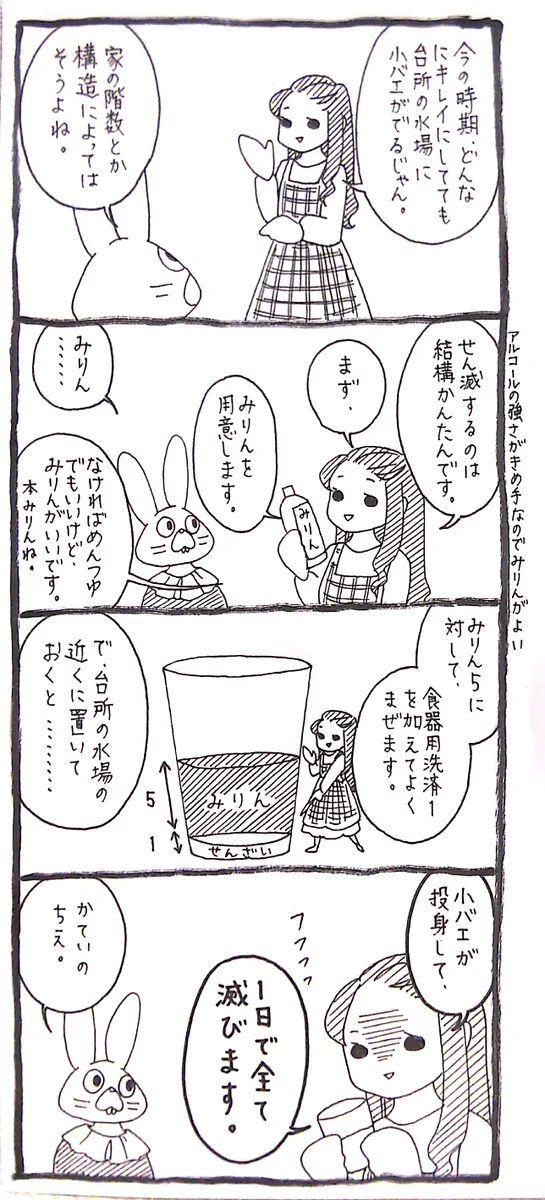 今の時期、どんな
にキレイにしてても
台所の水場に
小バエがでるじゃん。
家の階数とか
構造によっては
そうよね。
せん滅するのは
結構かんたんです。
まず、
みりんを
用意します。
みりん
みりん
……
なければめんつゆ
でもいいけど、
みりんがいいです。
本みりんね。
アルコールの強さがきめ手なのでみりんがよい
みりん5に
対して、
食器用洗済1
を加えてよく
まぜます。
みりん
せんざい
5
1
で、台所の水場の
近くに置いて
おくと………
小バエが
投身して、
フフフフ
1日で全て
滅びます。
かていの
ちえ。